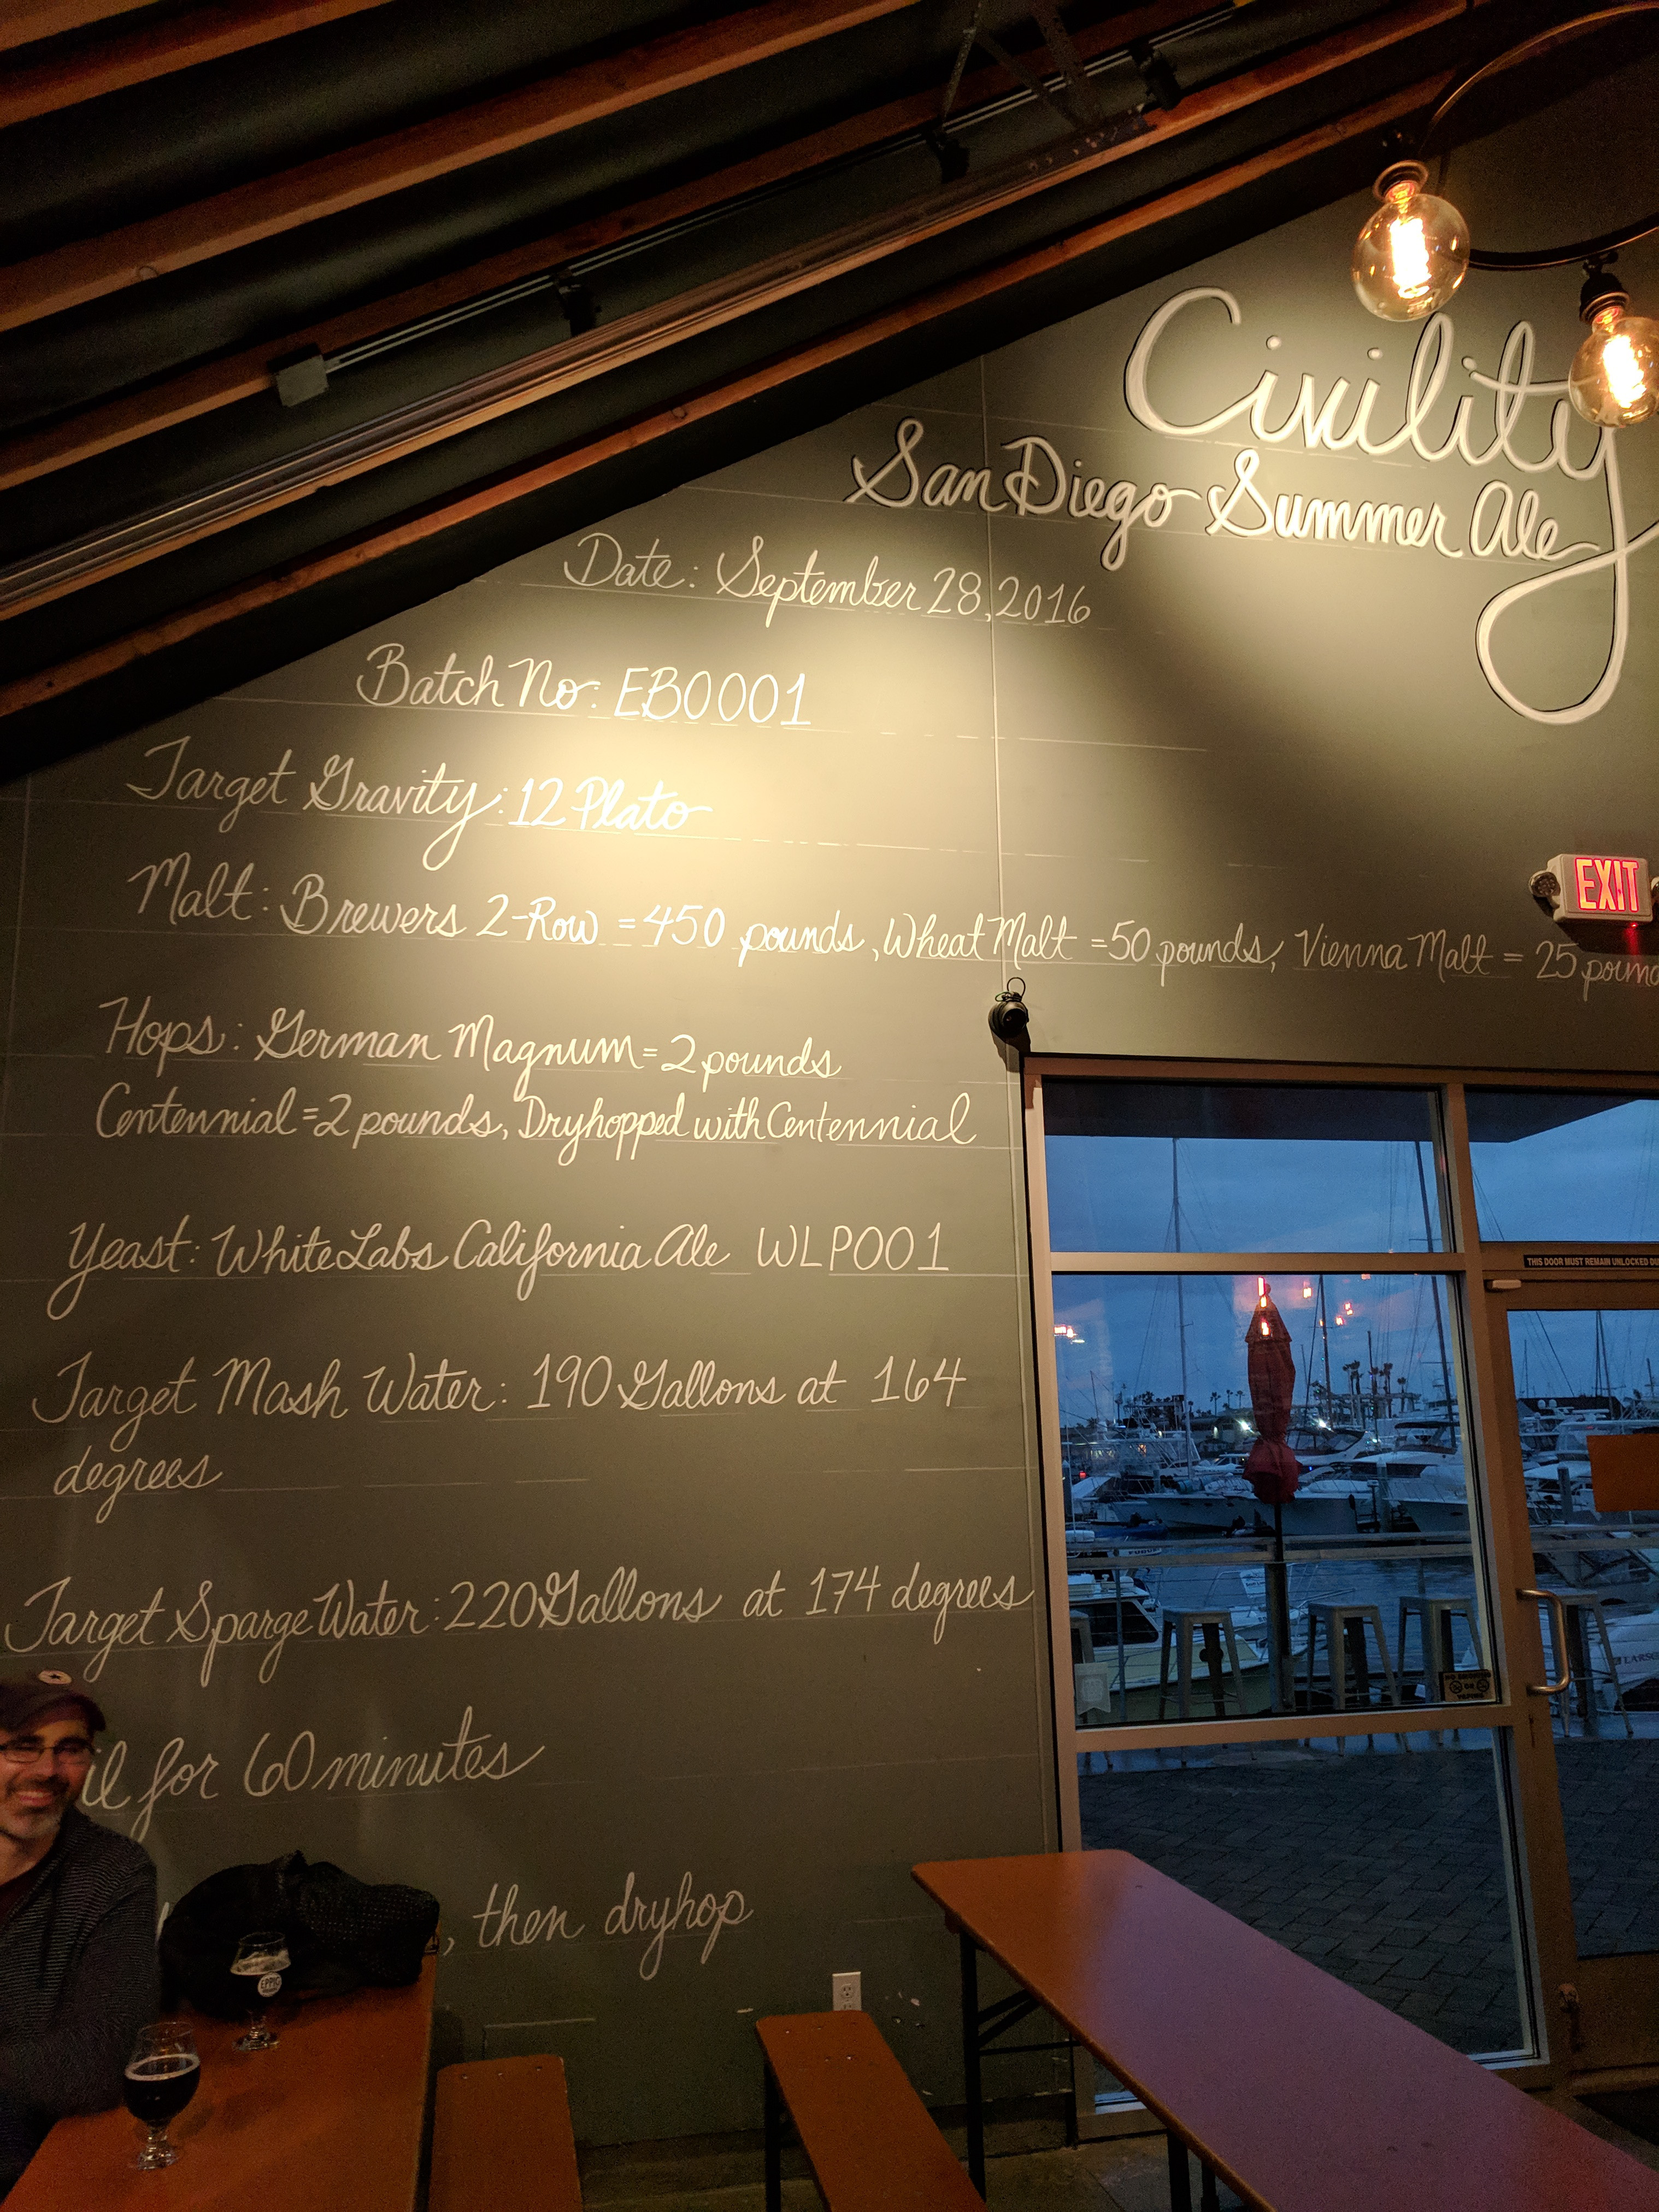 Civility
San Diego Summer Ale
Date: September 28, 2016
Batch No: EB0001
Target Gravity: 12 Plato
Malt: Brewers 2-Row = 450 pounds, Wheat Malt = 50 pounds, Vienna Malt = 25
EXIT
Hops: German Magnum = 2 pounds
Centennial = 2 pounds, Dryhopped with Centennial
Yeast: White Labs California Ale WLP001
THIS DOOR MUST REMAIN UNLOCKED
Target Mash Water: 190 Gallons at 164
degrees
Target Sparge Water: 220 Gallons at 174 degrees
NO SMOKING
OR
VAPING
for 60 minutes
, then dryhop
EPPIG